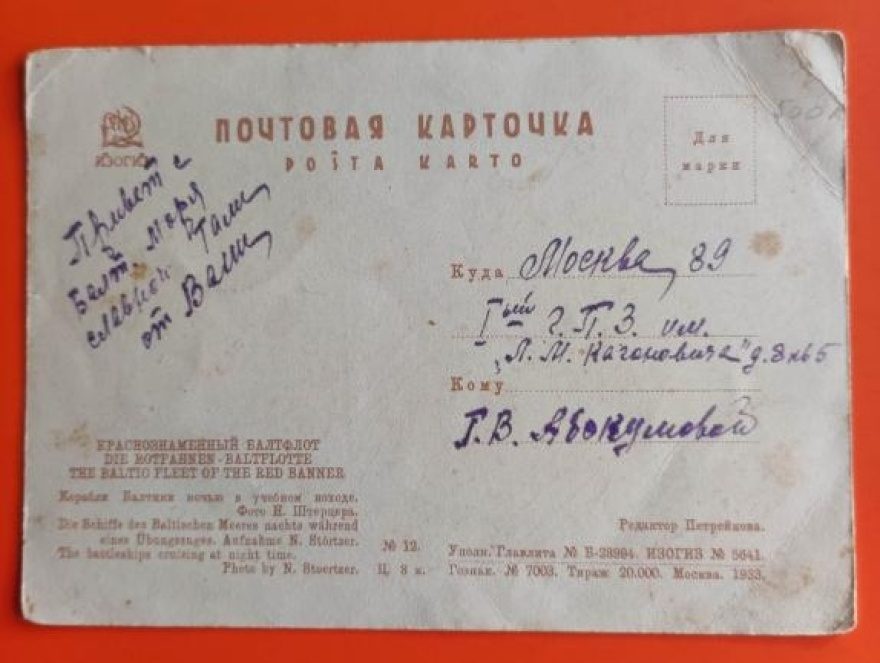 ИЗОГИЗ
ПОЧТОВАЯ КАРТОЧКА
POŜTA KARTO
Для
марки
Привет с
Балт. Моря
славной Гали,
от Вани,
Куда Москва, 89
Iый Г.П.З. им.
"Л.М. Кагоновича" д.8 кв5
Кому
Г.В. Абакумовой
КРАСНОЗНАМЕННЫЙ БАЛТФЛОТ
DIE ROTFAHNEN-BALTFLOTTE
THE BALTIC FLEET OF THE RED BANNER
Корабли Балтики ночью в учебном походе.
Фото Н. Штерцера.
Die Schiffe des Baltischen Meeres nachts während
eines Übungszuges. Aufnahme N. Störtzer.
The battleships cruising at night time.
Photo by N. Stoertzer.
№ 12.
Ц. 8 к.
Редактор Петрейкова.
Уполн. Главлита № Б-28994. ИЗОГИЗ № 5641.
Гознак. № 7003. Тираж 20.000. Москва. 1933.